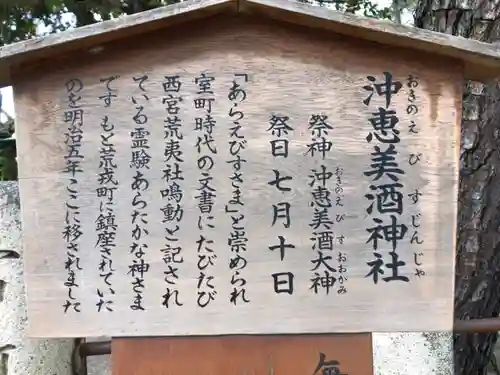 沖恵美酒神社
おきのえびすじんじゃ
祭神 沖恵美酒大神
おきのえびすおおかみ
祭日 七月十日
「あらえびすさま」と崇められ
室町時代の文書にたびたび
西宮荒夷社鳴動と記され
ている霊験あらたかな神さま
です もと荒戎町に鎮座されていた
のを明治五年ここに移されました